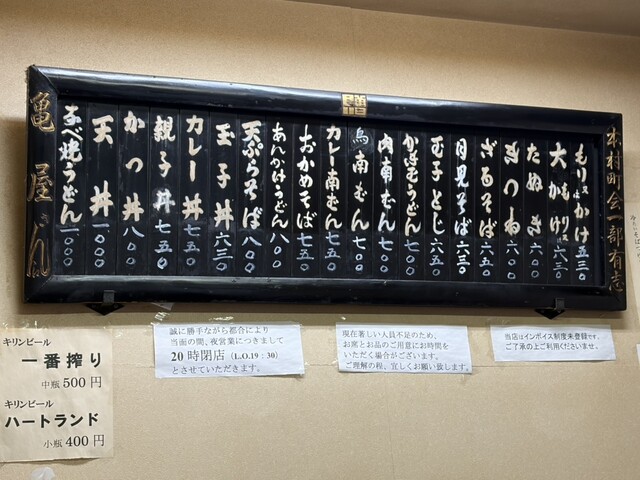 本村町会一部有志
もり又はかけ 五三〇
大もり又はかけ 六三〇
たぬき 六〇〇
きつね 六〇〇
ざるそば 六五〇
月見そば 六三〇
玉子とじ 六五〇
かけむうどん 七〇〇
肉南むん 七〇〇
鳥南むん 七〇〇
カレー南むん 七五〇
おかめそば 七五〇
あんかけうどん 八〇〇
天ぷらそば 八〇〇
玉子丼 六三〇
カレー丼 七五〇
親子丼 七五〇
かつ丼 八〇〇
天丼 一〇〇〇
なべ焼うどん 一〇〇〇
亀屋さん
キリンビール
一番搾り
中瓶 500 円
キリンビール
ハートランド
小瓶 400 円
誠に勝手ながら都合により
当面の間、夜営業につきまして
20 時閉店 (L.O.19：30)
とさせていただきます。
現在著しい人員不足のため、
お席とお品のご用意にお時間を
いただく場合がございます。
ご理解の程、宜しくお願い致します。
当店はインボイス制度未登録です。
ご了承の上ご利用くださいませ。